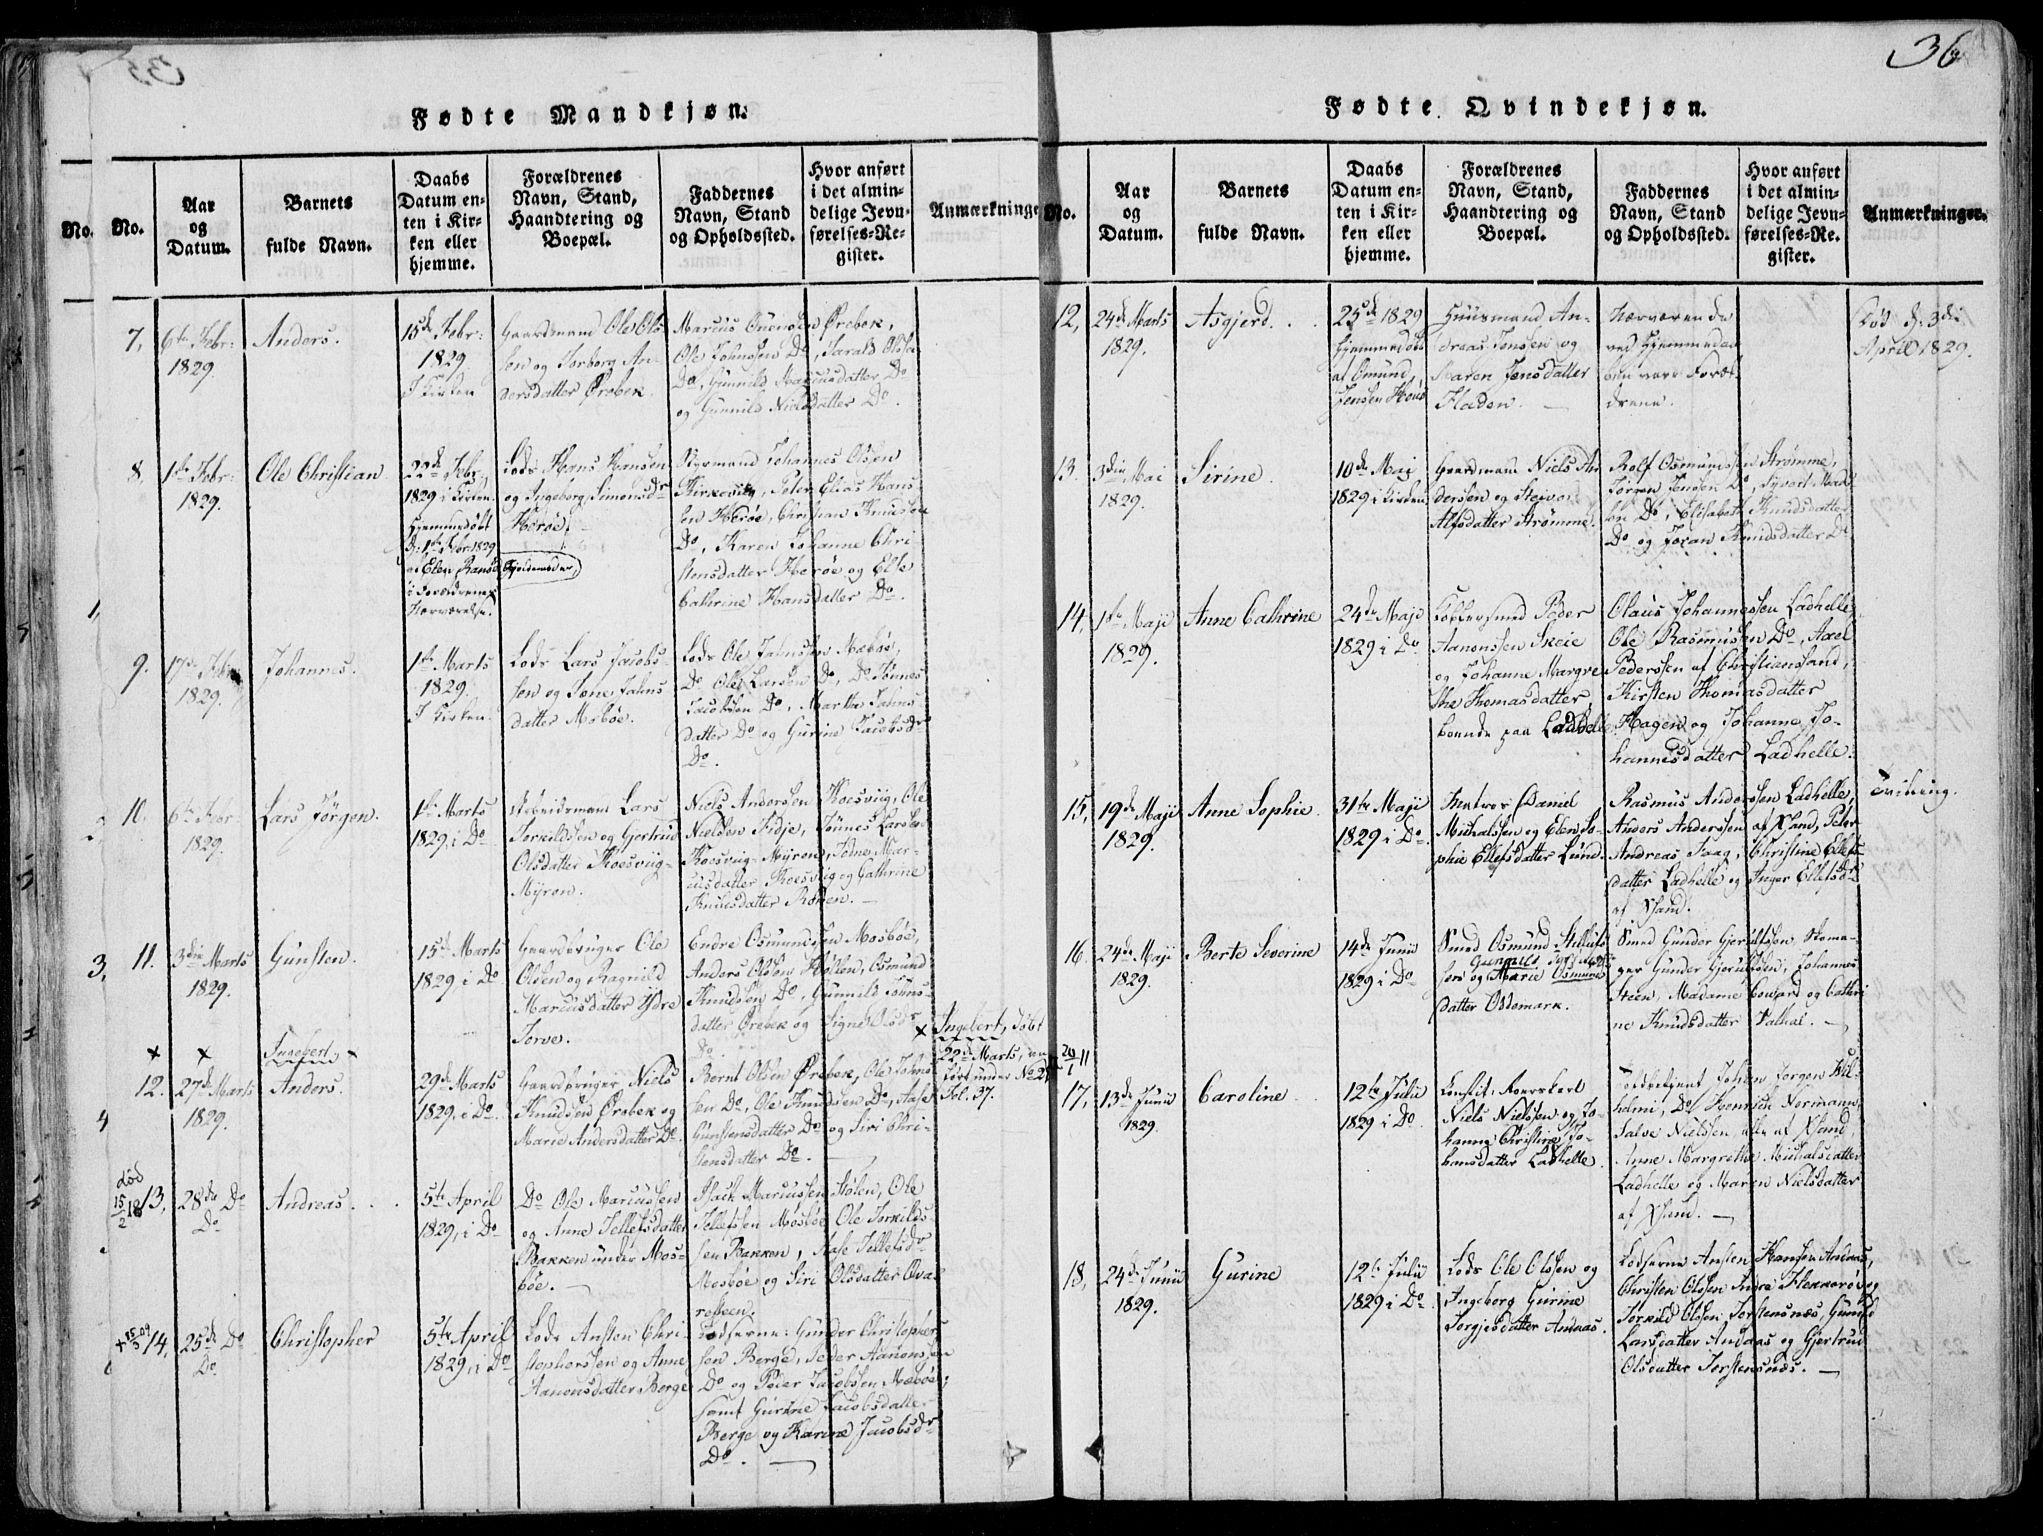 36
Fødte Mandkjøn.
No.
No.
Aar
og
Datum.
Barnets
fulde Navn.
Daabs
Datum en-
ten i Kir-
ken eller
hjemme.
Forældrenes
Navn, Stand,
Haandtering og
Boepæl.
Faddernes
Navn, Stand
og Opholdssted.
Hvor anført
i det almin-
delige Jevn-
førelses-Re-
gister.
Anmærkninge
7,
6te Febr:
1829.
Anders.
15de Febr:
1829
I Kirken
Gaardmand Ole Ols
sen og Torborg An-
dersdatter Ørebek.
Marcus Ouensen Ørebek,
Ole Johnssen Do, Tarald Olsse
Do, Gunnild Marcusdatter Do
og Gunnild Nielsdatter Do.
8,
1ste Febr:
1829.
Ole Christian
22de Febr,
1829 i Kirken.
Hjemmedøbt
D: 1ste Febr: 1829
i Forældrenes
Nærværelse.
Lods Hans Hansen
og Ingeborg Simonsdr
Herøe.
Styrmand Johannes Olsen
Kirkeviig, Peter Elias Hans
sen Herøe, Christian Knudsen
Do, Karen Johanne Chri
stensdatter Herøe og Elle
Cathrine Hansdatter Do.
9.
17de Febr
1829.
Johannes.
1ste Marts
1829.
I Kirken.
Lods Lars Jacobs-
sen og Tone Jahns
datter Mebøe.
Lods Ole Jahnssen Mæbøe,
Do Ole Larsen Do, Do Tønnes
Jacobsen Do, Martha Jahns
datter Do og Gurine Jacobsdr
Do.
10.
6te Febr
1829.
Lars Jørgen.
1ste Marts
1829, i Do
Arbeidsmand Lars
Torkildssen og Gjertrud
Olsdatter Koesviig-
Myren.
Niels Anderssen Koesviig, Ole
Nielsen Fidje, Tønnes Larssen
Koesviig-Myren, Tone Mar-
cusdatter Koesviig og Cathrine
Knudsdatter Roken.
3,
11.
3die Marts
1829.
Gunsten.
15de Marts
1829, i Do
Gaardbruger Ole
Olsen og Ragnild
Marcusdatter Ydre
Torve.
Endre Osmundssen Mosbøe,
Anders Olsen Høllen, Osmund
Knudssen Do, Gunnild Johns-
datter Ørebek og Signe Olsdr
Do.
× Ingebert, døbt
22de Marts, an
ført under No 21
Fol. 37.
× × Ingebert ×
12.
27de Marts
1829.
Anders.
29de Marts
1829, i Do
Gaardbruger Niels
Knudsen Ørebek og
Marie Andersdatter Do.
Bernt Olsen Ørebek, Ole Johns
sen Do, Ole Knudssen Do, Aase
Gunstensdatter Do og Siri Chri-
stensdatter Do.
4
død
13,
28de Do
Do
Andreas.
5te April
1829, i Do
Do Ole Marcussen
og Anne Tellefsdatter
Bakken under Mos-
bøe.
Isack Marcussen Stølen, Ole
Tellefsen Mosbøe, Ole Torkilds-
sen Bakken, Aase Tellefsdr
Mosbøe og Siri Olsdatter Qva
resteen.
14,
25de Do
Do.
Christopher
5te April
1829, i Do
Lods Ansten Chri
stopherssen og Anne
Aanonsdatter Berge
Lodserne: Gunder Christophers
sen Berge, Peder Aanonssen
Do og Peter Jacobsen Mæbøe;
samt Gurine Jacobsdatter
Berge og Karine Jacobsdr
Do.
Fødte Qvindekjøn.
No.
Aar
og
Datum.
Barnets
fulde Navn.
Daabs
Datum en-
ten i Kir-
ken eller
hjemme.
Forældrenes
Navn, Stand,
Haandtering og
Boepæl.
Faddernes
Navn, Stand
og Opholdssted.
Hvor anført
i det almin-
delige Jevn-
førelses-Re.
gister.
Anmærkninger.
12,
24de Marts
1829.
Asgjerd.
25de 1829
Hjemmedøbt
af Omund
Jensen
Huusmand An-
dreas Jensen og
Maren Jensdatter
Fladen.
Nærværende
ved Hjemmedaa
ben vare Foræl-
drene.
Død d: 3die
April 1829.
13.
3die Mai
1829.
Sirine.
10de Maj
1829 i Kirken
Gaardmand Niels An
dersen og
Alfsdatter Strømme.
Rolf Osmundsen Strømme,
Jørgen Jensen Do, Syvert Mad
sen Do, Elisabeth Knudsdatter
Do og Joran Knudsdatter Do
14,
1ste Maji
1829.
Anne Cathrine
24de Maji
1829 i Do
Kobbersmed Peder
Aanonssen Skeie
og Johanne Margre
the Thomasdatter
boende paa Ladhelle
Olaus Johannessen Ladhelle,
Ole Rasmussen Do, Axel
Pederssen af Christianssand,
Kirsten Thomasdatter
Hagen og Johanne Jo-
hannesdatter Ladhelle.
15,
19de Maji
1829.
Anne Sophie.
31te Maji
1829 i Do.
Matros Daniel
Michalssen og Elen So-
phie Ellefsdatter Lund.
Rasmus Anderssen Ladhelle,
Anders Anderssen af Xsand, Peter
Andreas Faag, Christine Ellefs-
datter Ladhelle og Inger Ellefsdr
af Xsand.
Tvilling.
16.
24de Maji
1829.
Berte Severine
14de Junii
1829 i Do
Smed Osmund Stillufs
sen og Marie Osmunds
Gunnild
datter Oddemark.
Smed Gunder Gjerulfssen, Skoma-
ger Gunder Gjerulfsen, Johannes
Steen, Madame Coward og Cathri
ne Knudsdatter Valhal.
17,
13de Junii
1829.
Caroline.
12te Julii
1829 i Do
Niels Nielssen og Jo-
hanne Christine Jo-
hansdatter Ladhelle.
Toldbetjent Johan Jørgen Wil-
helmi, Do Henrich Normann,
Salve Nielssen, alle af Xsand,
Anne Margrethe Michalsdatter
Ladhelle og Maren Nielsdatter
af Xsand.
18,
24de Junii
1829.
Gurine
12te Julii
1829 i Do.
Lods Ole Olssen og
Ingeborg Gurine
Torgjesdatter Andaas.
Lodserne Ansten Hansen Andaas,
Christen Olssen Indre Flekkerøe og
Torkild Olssen Torstensnæs, Gunild
Larsdatter Andaas og Gjertrud
Olsdatter Torstensnæs.